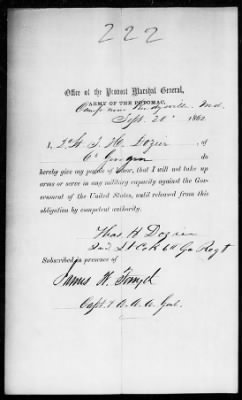 222
Office of the Provost Marshal General,
ARMY OF THE POTOMAC,
Camp near Md.
Sept. 20" 1862
I, 2d Lt. T. H. Dozier of
6th Georgia do
hereby give my parole of honor, that I will not take up
arms or serve in any military capacity against the Gov-
ernment of the United States, until released from this
obligation by competent authority.
Thos H Dozier
2nd Lt Co K 6th Ga Regt
Subscribed in presence of
James W. Forsyth
Capt. &